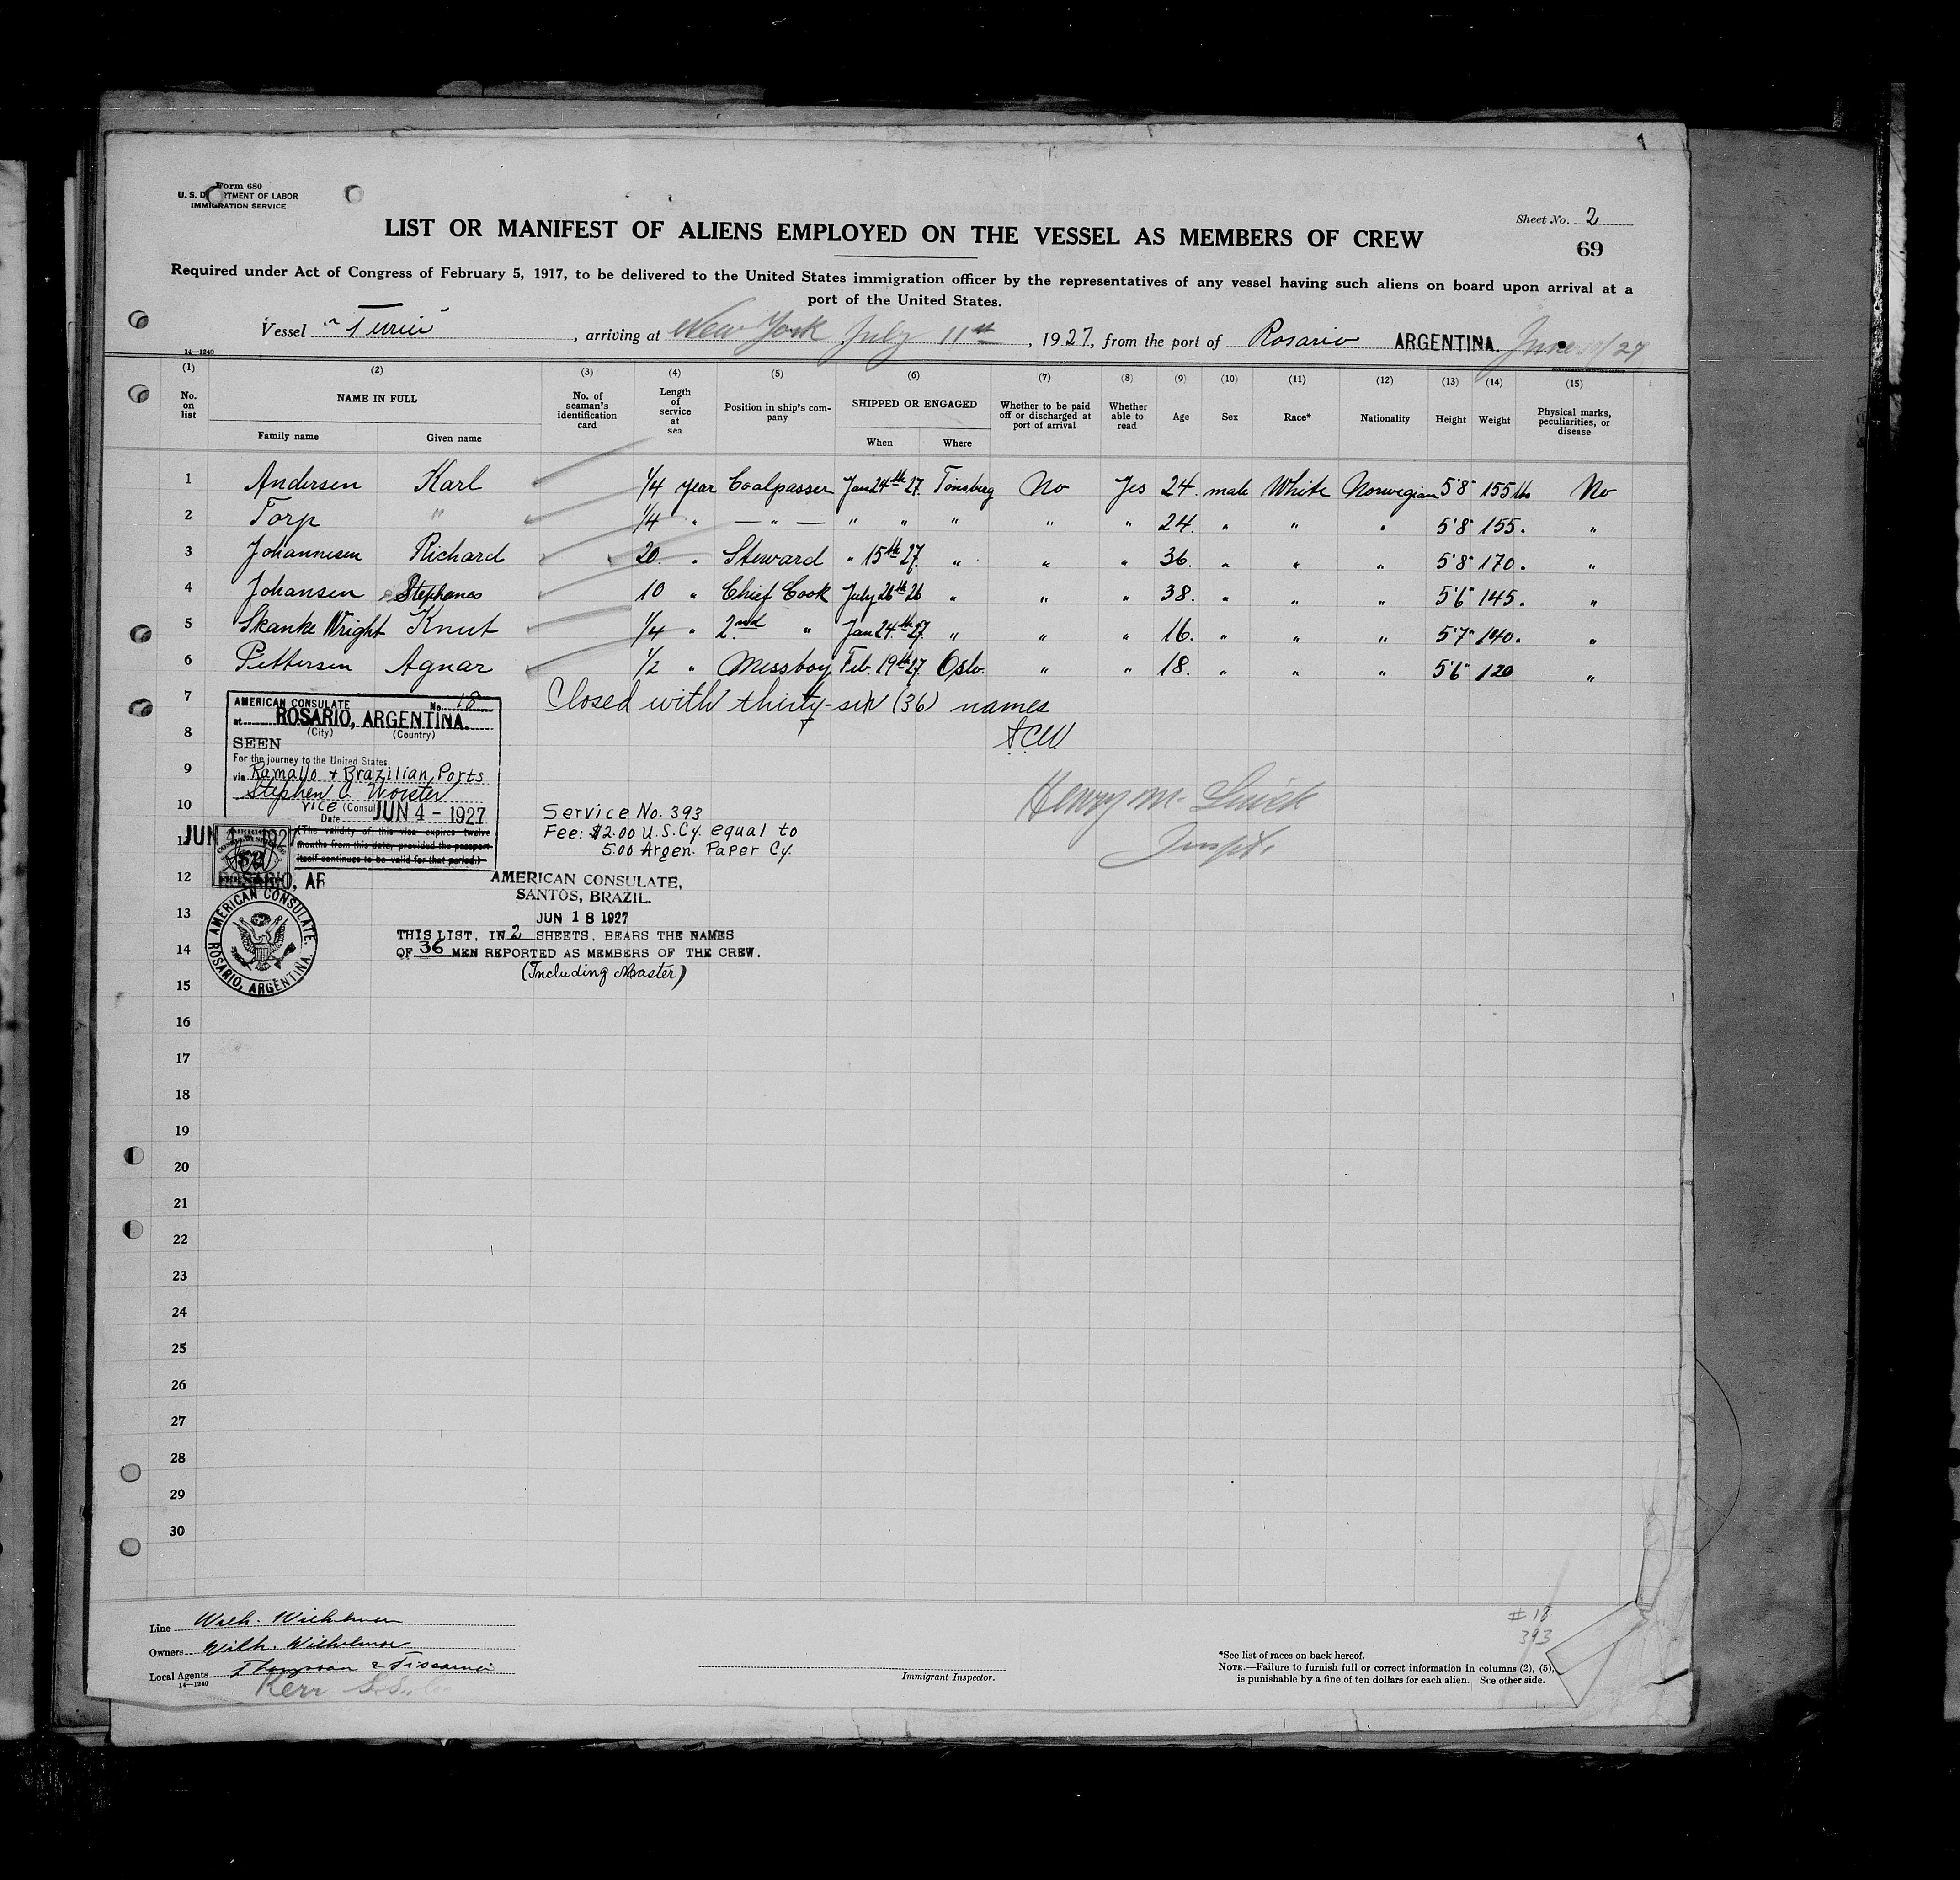 Form 680
U. S. D TMENT OF LABOR
IMMIGRATION SERVICE
Sheet No. 2
69
LIST OR MANIFEST OF ALIENS EMPLOYED ON THE VESSEL AS MEMBERS OF CREW
Required under Act of Congress of February 5, 1917, to be delivered to the United States immigration officer by the representatives of any vessel having such aliens on board upon arrival at a
port of the United States.
Vessel , arriving at New York July 11th, 1927, from the port of Rosario ARGENTINA. June /27
14—1240
(1) (2) (3) (4) (5) (6) (7) (8) (9) (10) (11) (12) (13) (14) (15)
No. on list NAME IN FULL Family name Given name No. of seaman's identification card Length of service at sea Position in ship's company SHIPPED OR ENGAGED When Where Whether to be paid off or discharged at port of arrival Whether able to read Age Sex Race* Nationality Height Weight Physical marks, peculiarities, or disease
1 Andersen Karl 1/4 year Coalpasser Jan 24th 27. Tönsberg No Yes 24. male White Norwegian 5'8" 155 lbs No
2 Torp " 1/4 " — " — " " " " " 24. " " " 5'8" 155. "
3 Johannesen Richard 20. " Steward " 15th 27. " " " 36. " " " 5'8" 170. "
4 Johansen Stephanos 10 " Chief Cook July 26th 26 " " " 38. " " " 5'6" 145. "
5 Skanke Wright Knut 1/4 " 2nd " Jan 24th 27. " " " 16. " " " 5'7" 140. "
6 Pettersen Agnar 1/2 " Messboy Feb. 19th 27. Oslo. " " 18. " " " 5'6" 120 "
7 Closed with thirty-six (36) names
8
9
10
11
12
13
14
15
16
17
18
19
20
21
22
23
24
25
26
27
28
29
30
AMERICAN CONSULATE No. 18
at ROSARIO, ARGENTINA.
(City) (Country)
SEEN
For the journey to the United States
via Ramallo + Brazilian Ports
Stephen C. Worster
Vice (Consul
Date JUN 4 - 1927
(The validity of this visa expires twelve
months from this date, provided the passport
itself continues to be valid for that period.)
JUN 4 - 1927
ROSARIO, AR
AMERICAN CONSULATE. ROSARIO, ARGENTINA.
Service No. 393
Fee: $2.00 U.S.Cy. equal to
5.00 Argen. Paper Cy.
Henry M.
Inspt.
AMERICAN CONSULATE,
SANTOS, BRAZIL.
JUN 18 1927
THIS LIST, IN 2 SHEETS, BEARS THE NAMES
OF 36 MEN REPORTED AS MEMBERS OF THE CREW.
(Including Master)
Line Wilh. Wilhelmsen
Owners Wilh. Wilhelmsen
Local Agents
14—1240
Kerr
Immigrant Inspector.
# 18
393
*See list of races on back hereof.
NOTE.—Failure to furnish full or correct information in columns (2), (5),
is punishable by a fine of ten dollars for each alien. See other side.